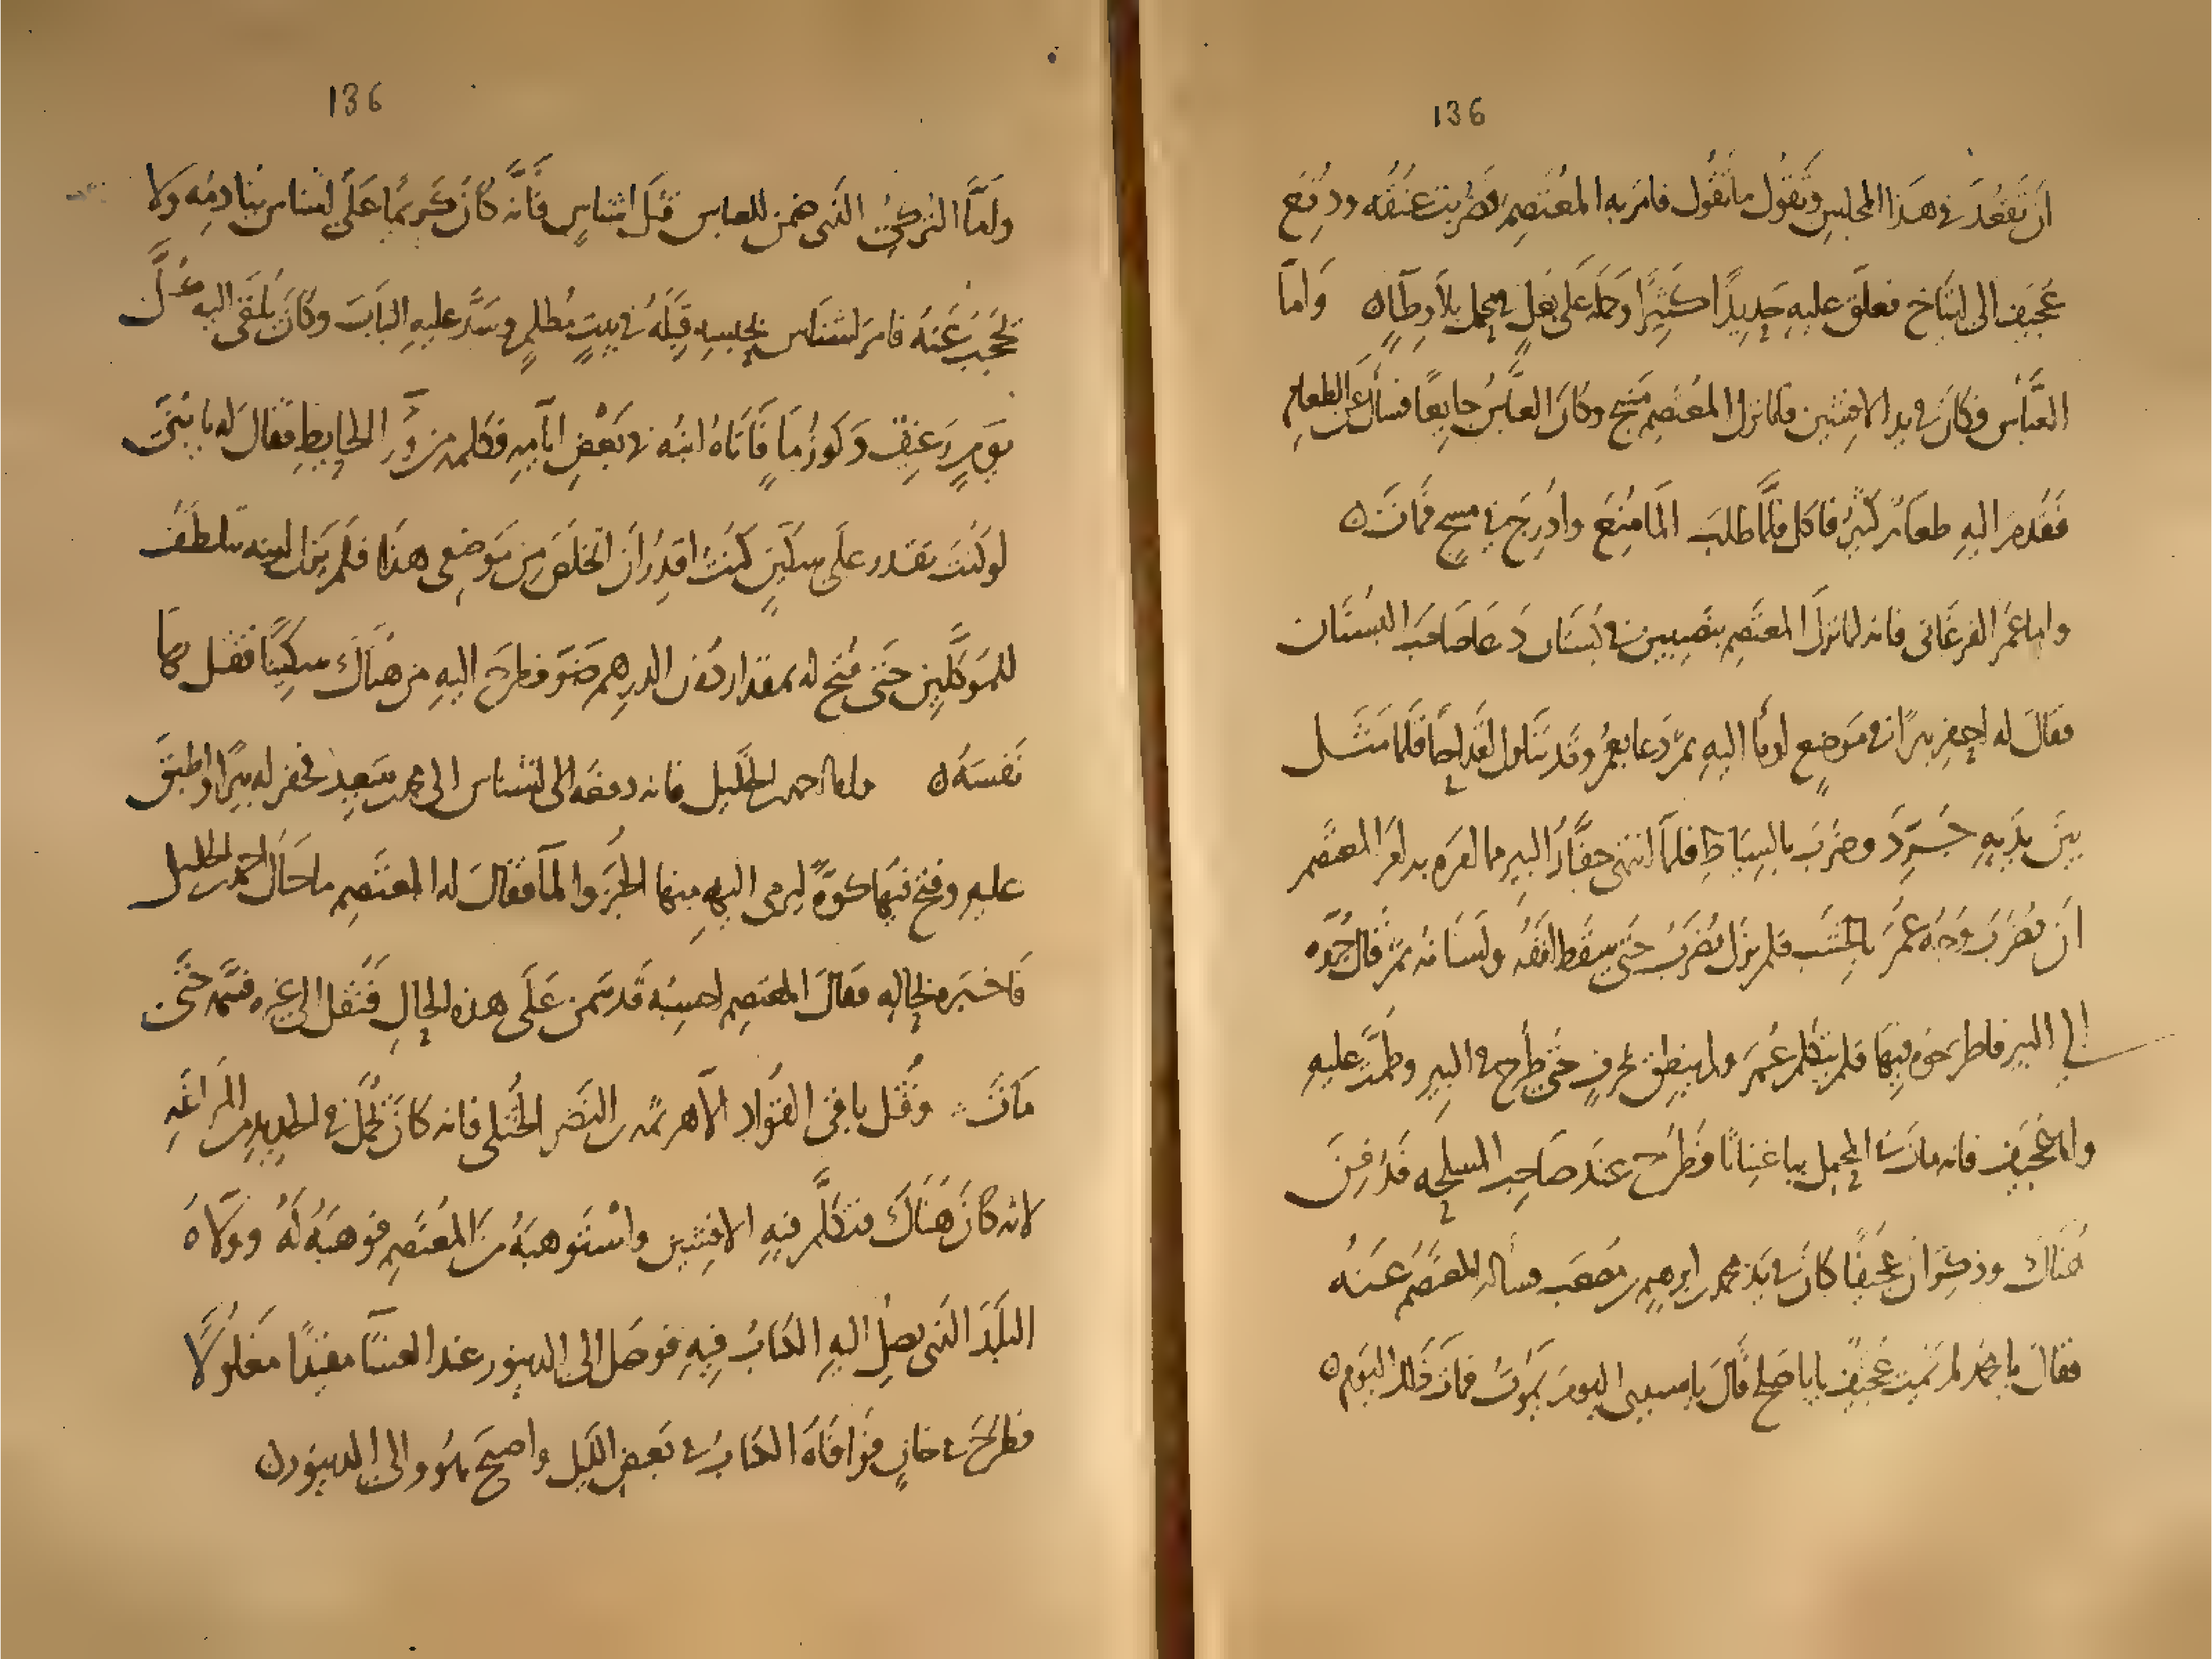 136
ان تقعد في هذا المجلس وتقول ما تقول فامر به المعتصم فضربت عنقه ودفع
عجيف الى ايتاخ فعلق عليه حديدًا كثيرًا وحمله على بغل في محمل بلا وطآء ه وامّا
العبّاس فكان في يد الافشين فلما نزل المعتصم منبج وكان العباس جايعًا فسأل عن الطعام
فقدم اليه طعام كثير فاكل فلمّا طلب المآ منع وادرج في مسح فمات ه
واما عمر الفرغانى فانه لما نزل المعتصم بنصيبين في بستان دعا صاحب البستان
فقال له احفر بيرًا في موضع اومأ اليه ثم دعا بعمر وقد تناول اقداحًا فلما مثل
بين يديه جُرّد وضرب بالسياط فلمآ انتهى حفّار البير مما امره به امر المعتصم
ان يضرب وجه عمر بالخشب فلم يزل يضرب حتى سقط انفه ولسانه ثم قال جرّوه
الى البير فاطرحوه فيها فلم يتكلم عمر ولم ينطق بحرف حتى طرح في البير وطمّت عليه
واما عجيف فانه مات في المحمل بباعيناثا فطرح عند صاحب المسلحه فدفن
هناك وذكر ان عجيفًا كان في يد محمد بن ابرهيم بن مصعب فساله المعتصم عنه
فقال يا محمد لم يمت عجيف يا با صلح قال يا سيدى اليوم يموت فمات ذلك اليوم ه
136
وامّا التركىّ الذى ضمن للعباس قتل اشناس فانّه كان كريمًا على اشناس ينادمه ولا
يحجب عنه فامر اشناس بحبسه قبله في بيت مظلم وسدّ عليه الباب وكان يلقى اليه في كلّ
يوم رغيف وكوز مآ فاتاه ابنه في بعض ايّامه فكلمه من ورآ الحايط فقال له يا بنىّ
لو كنت تقدر على سكين كنت اقدر ان اتخلص من موضعى هذا فلم يزل ابنه يتلطف
للموكّلين حتى فتح له بمقدار دون الدرهم ضوء فطرح اليه من هناك سكينًا فقتل بها
نفسه ه واما احمد بن الخليل فانه دفعه اشناس الى محمد بن سعيد فحفر له بيرًا واطبق
عليه وفتح فيها كوّة ليرمى اليه منها الخبز والمآ فقال له المعتصم ما حال احمد بن الخليل
فاخبره بحاله فقال المعتصم احسبه قد سمن على هذه الحال فنقل الى غيره فسمّه حتى
مات وقُتل باقى القوّاد الّا هرثمه بن النضر الختلى فانه كان يحمل في الحديد من المراغه
لانه كان هناك فتكلّم فيه الافشين واستوهبه من المعتصم فوهبه له وولّاه
البلد الذى يصل اليه الكتاب فيه فوصل الى الدينور عند العشآ مقيدًا مغلولًا
فطرح في خان فوافاه الكتاب في بعض الليل واصبح وهو والى الدينور ه